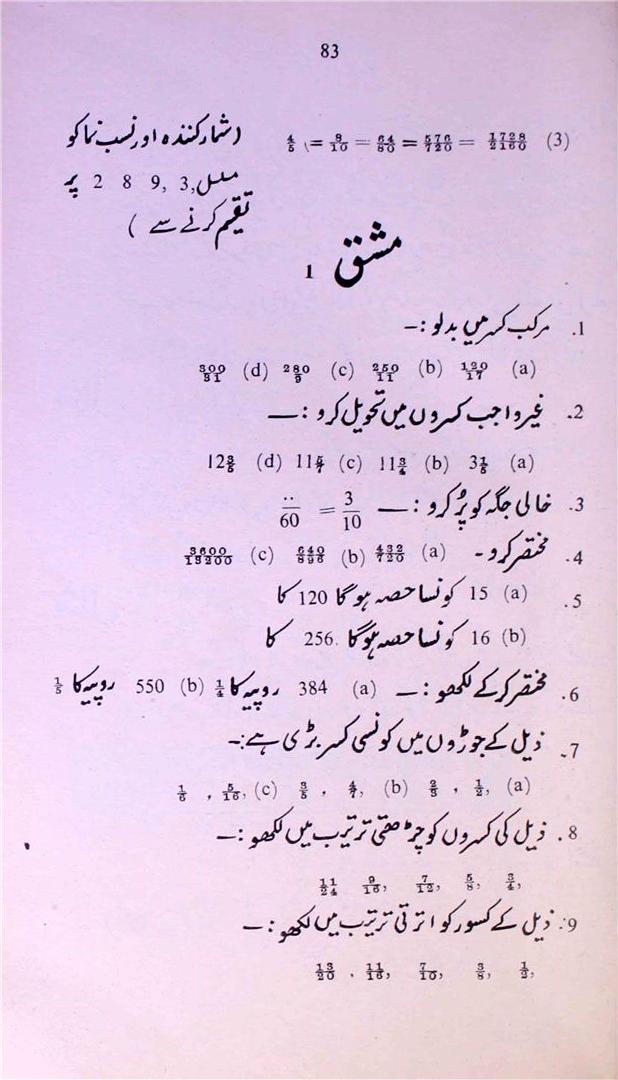 83
(3) 1728/2160 = 576/720 = 64/80 = 8/10 = 4/5 (شمار کنندہ اور نسب نما کو
3, 9, 8 2 پر
تقیم کرنے سے )
مشق 1
1. مرکب کسر میں بدلو :-
(a) 120/17 (b) 250/11 (c) 280/9 (d) 300/31
2. غیر واجب کسروں میں تحویل کرو :—
(a) 3 1/5 (b) 11 3/4 (c) 11 5/7 (d) 12 3/5
3. خالی جگہ کو پُر کرو :— 3/10 = ../60
4. مختصر کرو - (a) 432/720 (b) 640/896 (c) 3600/13200
5. (a) 15 کونسا حصہ ہوگا 120 کا
(b) 16 کونسا حصہ ہوگا 256. کا
6. مختصر کرکے لکھو :— (a) 384 روپیہ کا 1/4 (b) 550 روپیہ کا 1/5
7. ذیل کے جوڑوں میں کونسی کسر بڑی ہے:-
(a) 1/2, , 2/3 (b) 4/7, , 3/5 (c) 5/16, , 1/6
8. ذیل کی کسروں کو چڑھتی ترتیب میں لکھو :—
3/4, 5/8, 7/12, 9/16, 11/24
9. ذیل کے کسور کو اترتی ترتیب میں لکھو :—
1/2, 3/8, 7/10, 11/16, , 13/20